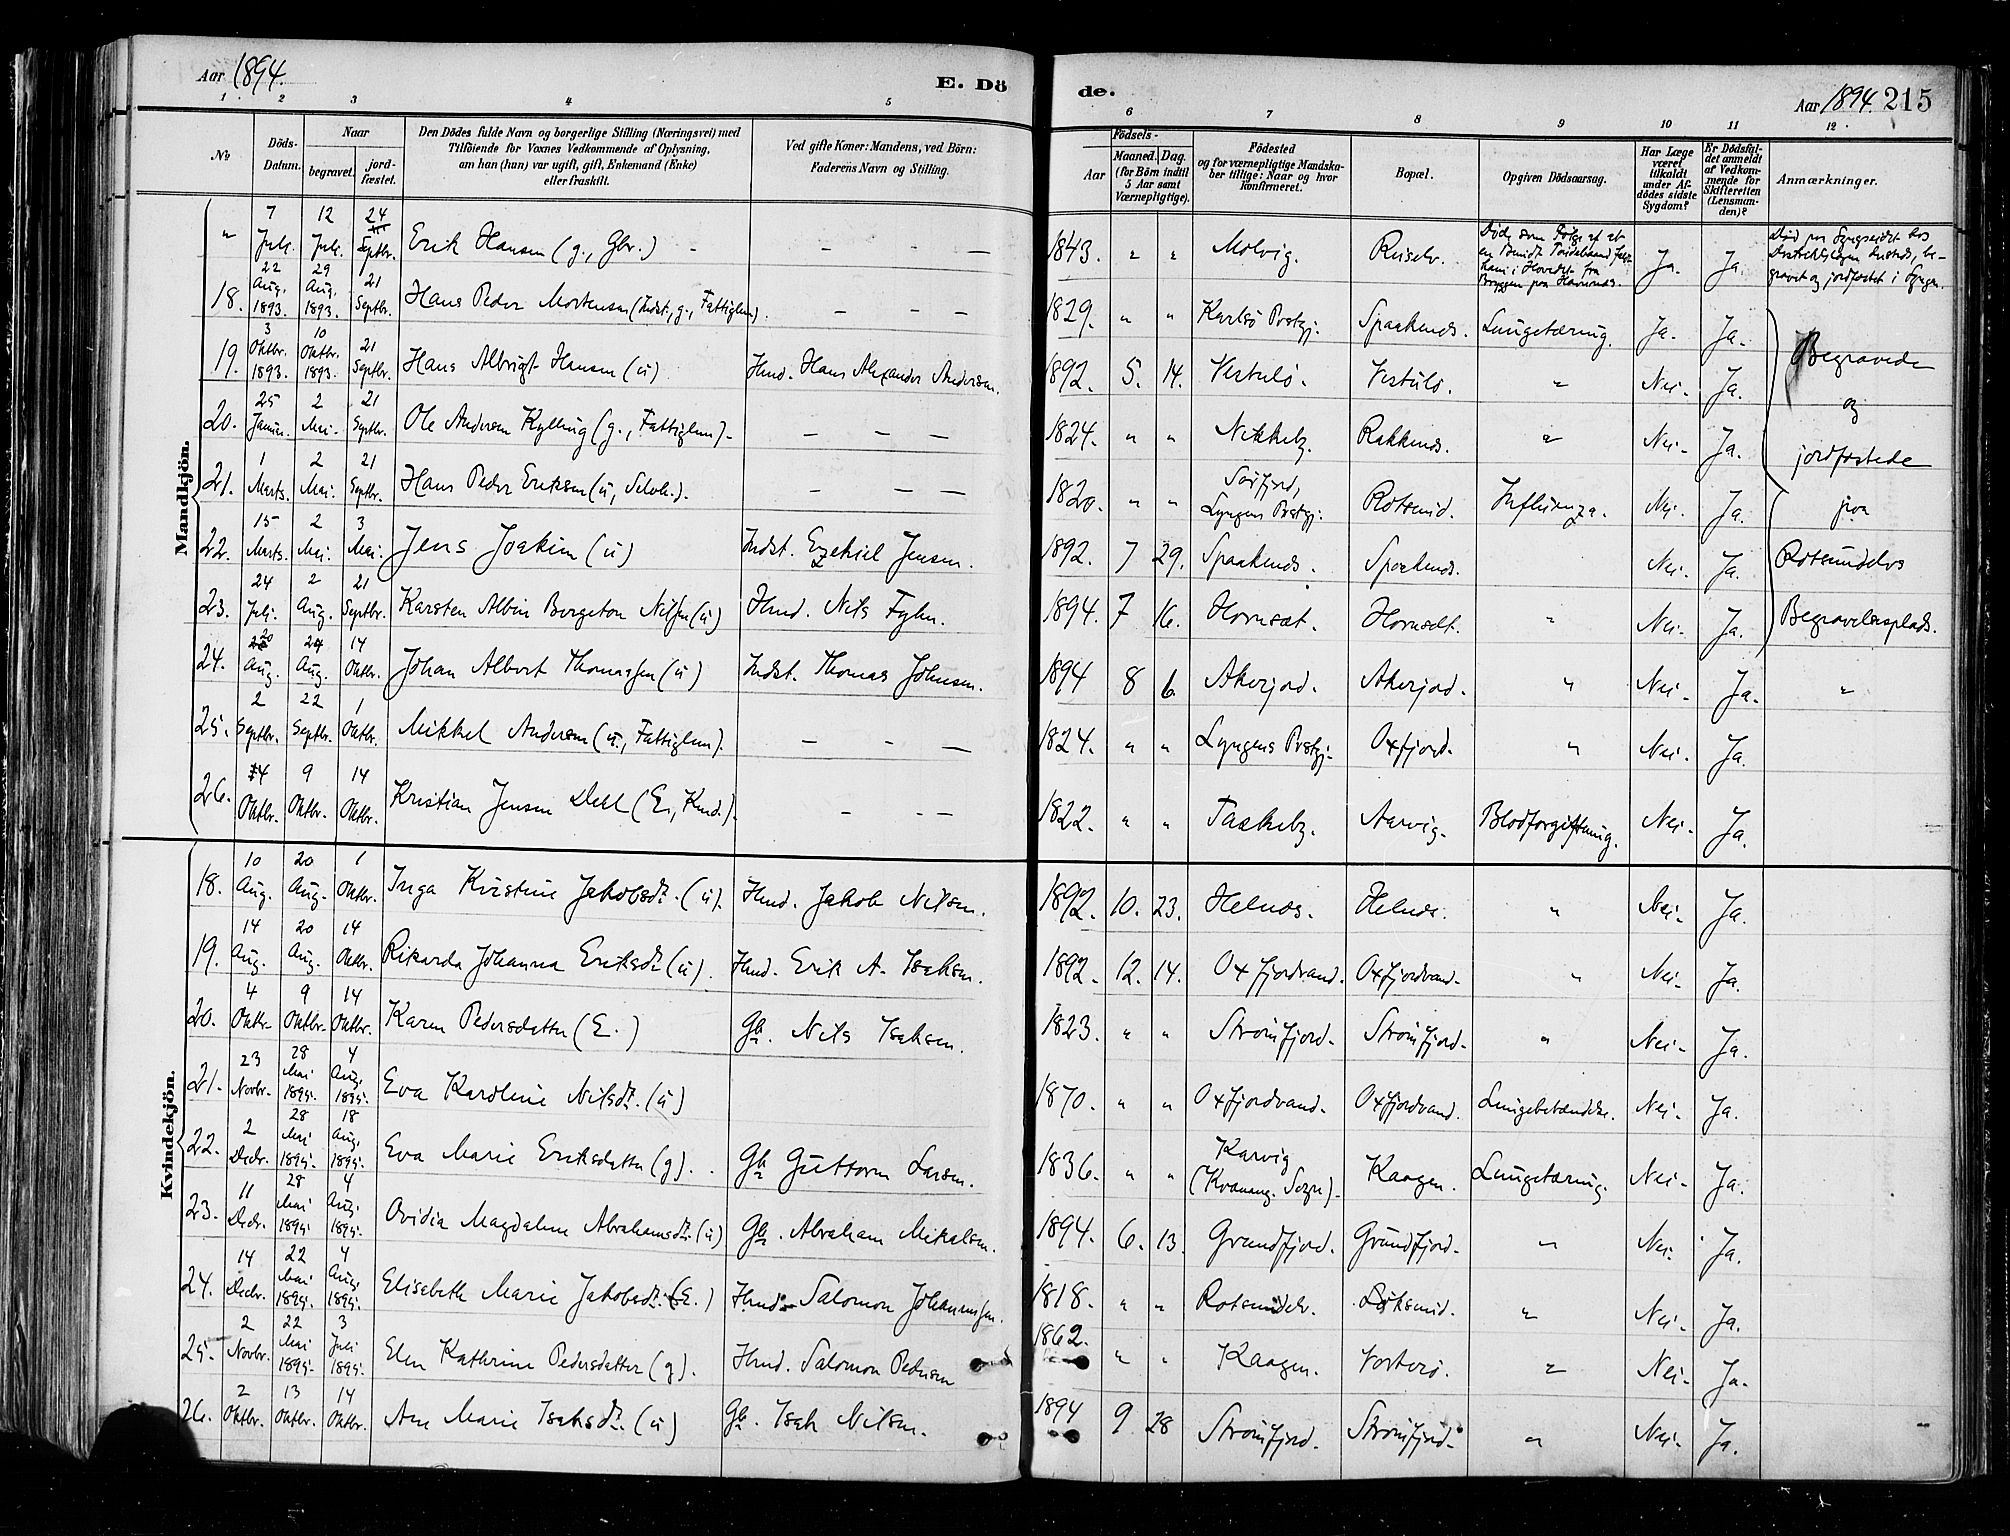 Aar 1894.
E. Dö
de.
Aar 1894. 215
1 2 3 4 5 6 7 8 9 10 11 12
No
Döds-
Datum.
Naar
begravet.
jord-
fæstet.
Den Dödes fulde Navn og borgerlige Stilling (Næringsvei) med
Tilföiende for Voxnes Vedkommende af Oplysning,
am han (hun) var ugift, gift, Enkemand (Enke)
eller fraskilt.
Ved gifte Koner: Mandens, ved Börn:
Faderens Navn og Stilling.
Födsels-
Aar
Maaned. Dag.
(for Börn indtil
5 Aar samt
Værnepligtige).
Födested
og for værnepligtige Mandska-
ber tillige: Naar og hvor
konfirmeret.
Bopæl.
Opgiven Dödsaarsag.
Har Læge
været
tilkaldt
under Af-
dödes sidste
Sygdom?
Er Dödsfal-
det anmeldt
af Vedkom-
mende for
Skifteretten
(Lensman-
den)?
Anmærkninger.
Mandkjön.
" 7 Juli. 12 Juli. 24 Septbr. Erik Hansen (g., Gbr.) - - - — 1843. " " Molvig. Reiselv. Ja. Ja.
18. 22 Aug. 1893. 29 Aug. 1893. 21 Septbr. Hans Peder Mortensen (Indst., g., Fattiglem). — — — 1829. " " Karlsö Prstgj. Spaakends. Lungetæring. Ja. Ja.
19. 3 Oktbr. 1893. 10 Oktbr. 1893. 21 Septbr. Hans Albrigt Hansen (u) Hmd. Hans Alexander Andersen. 1892. 5. 14. Vestulö. Vestulö. " Nei. Ja.
20. 25 Januar. 2 Mai. 21 Septbr. Ole Andersen Kylling (g., Fattiglem). — — — 1824. " " Nikkelby. Rakkends. " Nei. Ja.
21. 1 Marts. 2 Mai. 21 Septbr. Hans Peder Eriksen (u, Selvh.). — — — 1820. " " Sörfjord, Lyngens Prstgj. Rotsund. Influenza. Nei. Ja.
22. 15 Marts. 2 Mai. 3 Mai. Jens Joakim (u) Indst. Ezekiel Jensen. 1892. 7 29. Spaakends. Spaakends. Nei. Ja.
23. 24 Juli. 2 Aug. 21 Septbr. Karsten Albin Borgeton Nilsen (u) Hmd. Nils Fyhn. 1894. 7 16. Hornsæt. Hornsæt. " Nei. Ja.
Begravede
og
jordfæstede
paa
Rotsundelvs
Begravelsesplads.
24. 20 Aug. 24 Aug. 14 Oktbr. Johan Albert Thomassen (u) Indst. Thomas Johnsen. 1894 8 6. Akerjord. Akerjord. " Nei. Ja. "
25. 2 Septbr. 22 Septbr. 1 Oktbr. Mikkel Andersen (u., Fattiglem). — - — 1824. " " Lyngens Prstgj. Oxfjord. " Nei. Ja.
26. 4 Oktbr. 9 Oktbr. 14 Oktbr. Kristian Jensen Dahl (E., Kmd.). - - — 1822. " " Taskeby. Aarvig. Blodforgiftning. Nei. Ja.
Kvindekjön.
18. 10 Aug. 20 Aug. 1 Oktbr. Inga Kristine Jakobsdt. (u). Hmd. Jakob Nilsen. 1892. 10. 23. Helnds. Helnds. " Nei. Ja.
19. 14 Aug. 20 Aug. 14 Oktbr. Rikarda Johanna Eriksdt. (u). Hmd. Erik A. Isaksen. 1892. 12. 14. Oxfjordvand. Oxfjordvand. " Nei. Ja.
20. 4 Oktbr. 9 Oktbr. 14 Oktbr. Karen Pedersdatter (E.) Gbr. Nils Isaksen. 1823. " " Strømfjord. Strømfjord. " Nei. Ja.
21. 23 Novbr. 28 Mai 1895. 4 Aug. 1895. Eva Karoline Nilsdt. (u) 1870. " " Oxfjordvand. Oxfjordvand. Lungebetændelse. Nei. Ja.
22. 2 Decbr. 28 Mai 1895. 18 Aug. 1895. Eva Marie Eriksdatter (g). Gbr Guttorm Larsen. 1836. " " Karvig (Kvænang. Sogn). Kaagen. Lungetæring. Nei. Ja.
23. 11 Decbr. 28 Mai 1895 4 Aug. 1895. Ovidia Magdalene Abrahamsdt. (u) Gbr. Abraham Mikalsen. 1894. 6. 13. Grundfjord. Grundfjord. " Nei. Ja.
24. 14 Decbr. 22 Mai 1895. 4 Aug. 1895. Elisabeth Marie Jakobsdt. (E.) Hmd. Salomon Johannesen. 1818. " " Rotsundelv. Löksund. " Nei. Ja.
25. 2 Novbr. 22 Mai 1895. 3 Juli 1895. Elen Kathrine Pedersdatter (g). Hmd. Salomon Pedersen 1862. " " Kaagen. Vorterö. " Nei. Ja.
26. 2 Oktbr. 13 Oktbr. 14 Oktbr. Ane Marie Isaksdt. (u) Gbr. Isak Nilsen. 1894 9 28 Strømfjord. Strømfjord. " Nei. Ja.